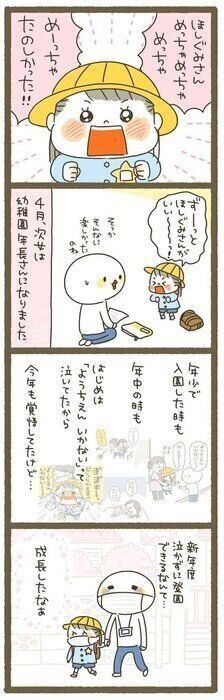 ほしぐみさん
めっちゃめっちゃ
めちゃ
めーっちゃ
たのしかった!!
ずーっと
ほしぐみさんが
いいーーっ!
そっか
そんなに
楽しかった
のね
4月、次女は
幼稚園 年長さんになりました
年少で
入園した時も
年中の時も
はじめは
「ようちえん いかない」って
泣いてたから
今年も覚悟してたけど…
新年度
泣かずに登園
できるなんて…
成長したなあ